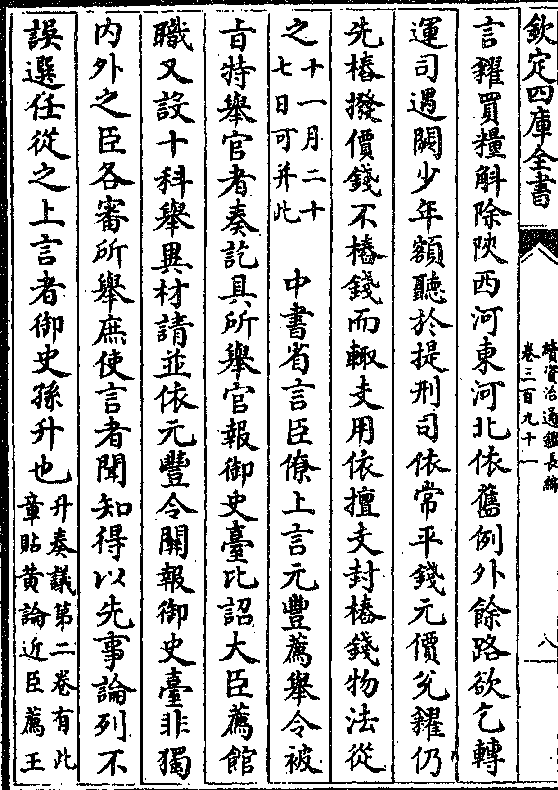 欽定四庫全書
續資治通鑑長編
卷三百九十一
八
言糴買糧斛除陜西河東河北依舊例外餘路欲乞轉
運司遇闕少年額聽於提刑司依常平錢元價兊糴仍
先樁撥價錢不樁錢而輒支用依擅支封樁錢物法從
之十一月二十七日可并此 中書省言臣僚上言元豐薦舉令被
㫖特舉官者奏訖具所舉官報御史臺比詔大臣薦館
職又設十科舉異材請並依元豐令關報御史臺非獨
内外之臣各審所舉庶使言者聞知得以先事論列不
誤選任從之上言者御史孫升也升奏議第二卷有此章貼黄論近臣薦王